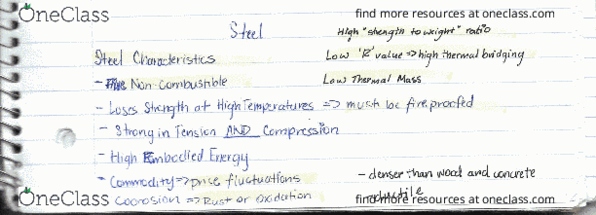 OneClass
find more resources at oneclass.com
Steel
High "strength to weight" ratio
Steel Characteristics
Low 'R' value => high thermal bridging
- Non-Combustible
Low Thermal Mass
- Loses Strength at High Temperatures => must be fireproofed
- Strong in Tension AND Compression
- High Embodied Energy
- Commodity => price fluctuations
- denser than wood and concrete
OneClass
Corrosion => Rust or oxidation
find more resources at oneclass.com